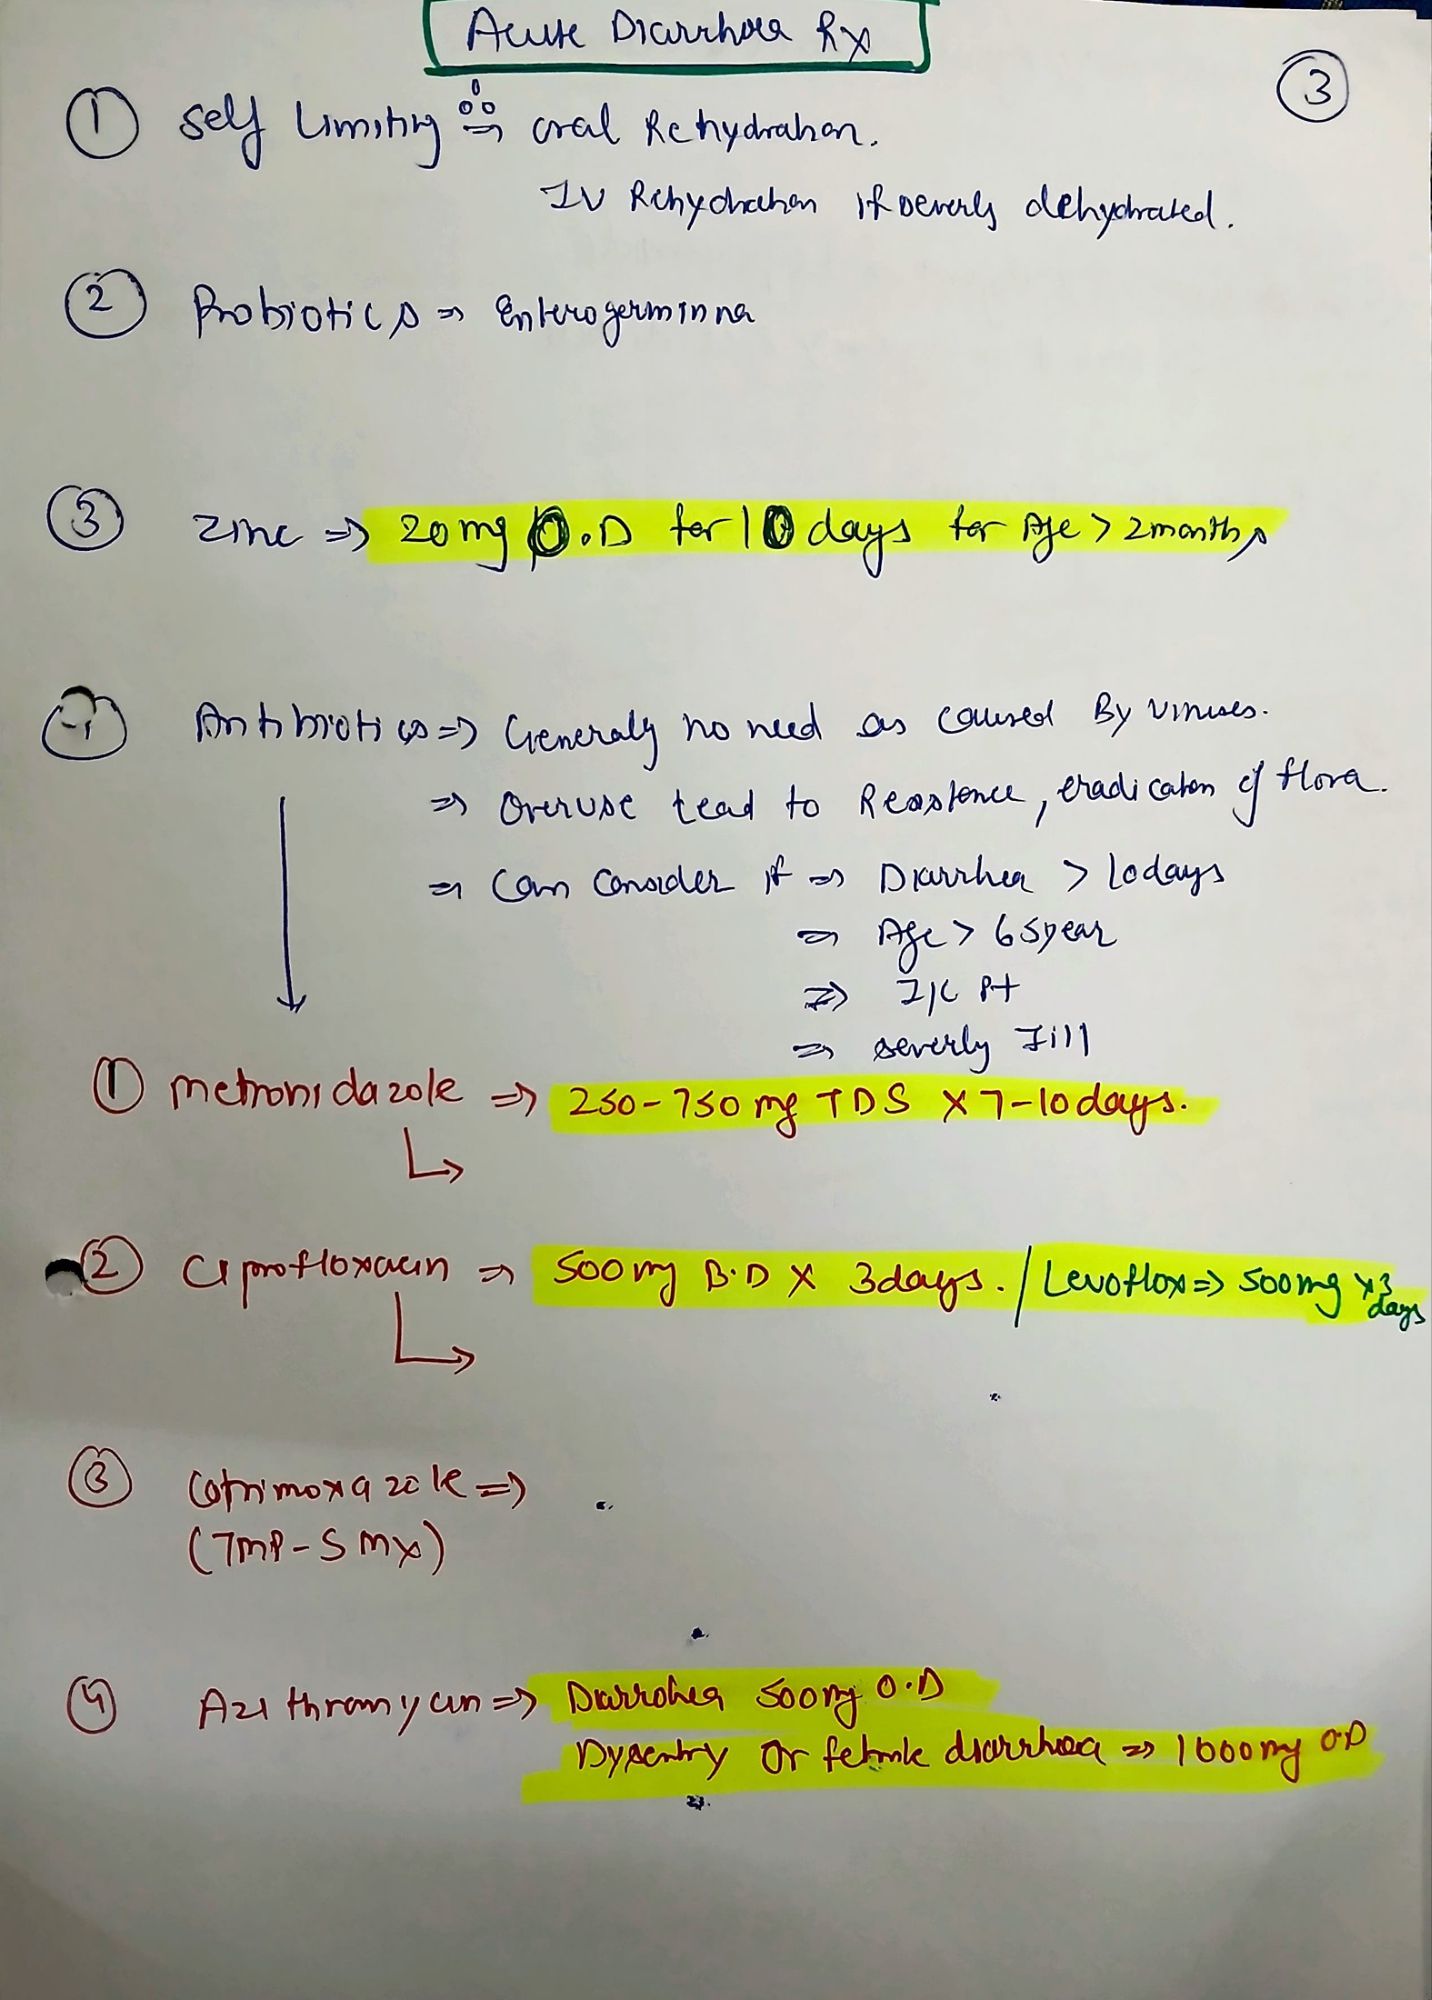 Acute Diarrhoea Rx
3
① Self Limiting ⇒ oral Rehydration.
IV Rehydration if severly dehydrated.
② Probiotics ⇒ Enterogerminna
③ Zinc ⇒ 20mg O.D for 10 days for Age > 2months
④ Antibiotics ⇒ Generaly no need as caused By viruses.
⇒ Overuse lead to Resistence, eradication of flora.
⇒ Can Consider if ⇒ Diarrhea > 10days
⇒ Age > 65year
⇒ I/C Pt
⇒ severly Iill
① metronidazole ⇒ 250-750mg TDS x 7-10days.
② Ciprofloxacin ⇒ 500mg B.D x 3days. / Levoflox ⇒ 500mg x3 days
③ Cotrimoxazole ⇒
(TMP-SMX)
④ Azithromycin ⇒ Diarrohea 500mg O.D
Dysentry or febrile diarrhoea ⇒ 1000mg O.D